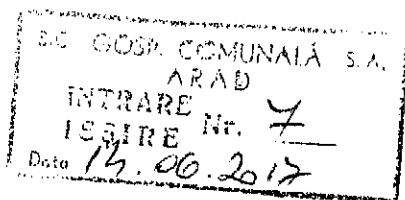 S.C. GOSP. COMUNALĂ S.A.
ARAD
INTRARE
IEȘIRE Nr. 7
Data 14.06.2017